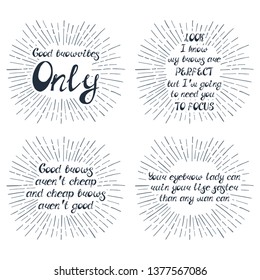 Good browvibes
Only
LOOK
I know
my brows are
PERFECT
but I've going
to need you
TO FOCUS
Good brows
aren't cheap
and cheap brows
aren't good
Your eyebrow lady can
ruin your lige gaster
than any man can
shutterstock.com · 1377567086